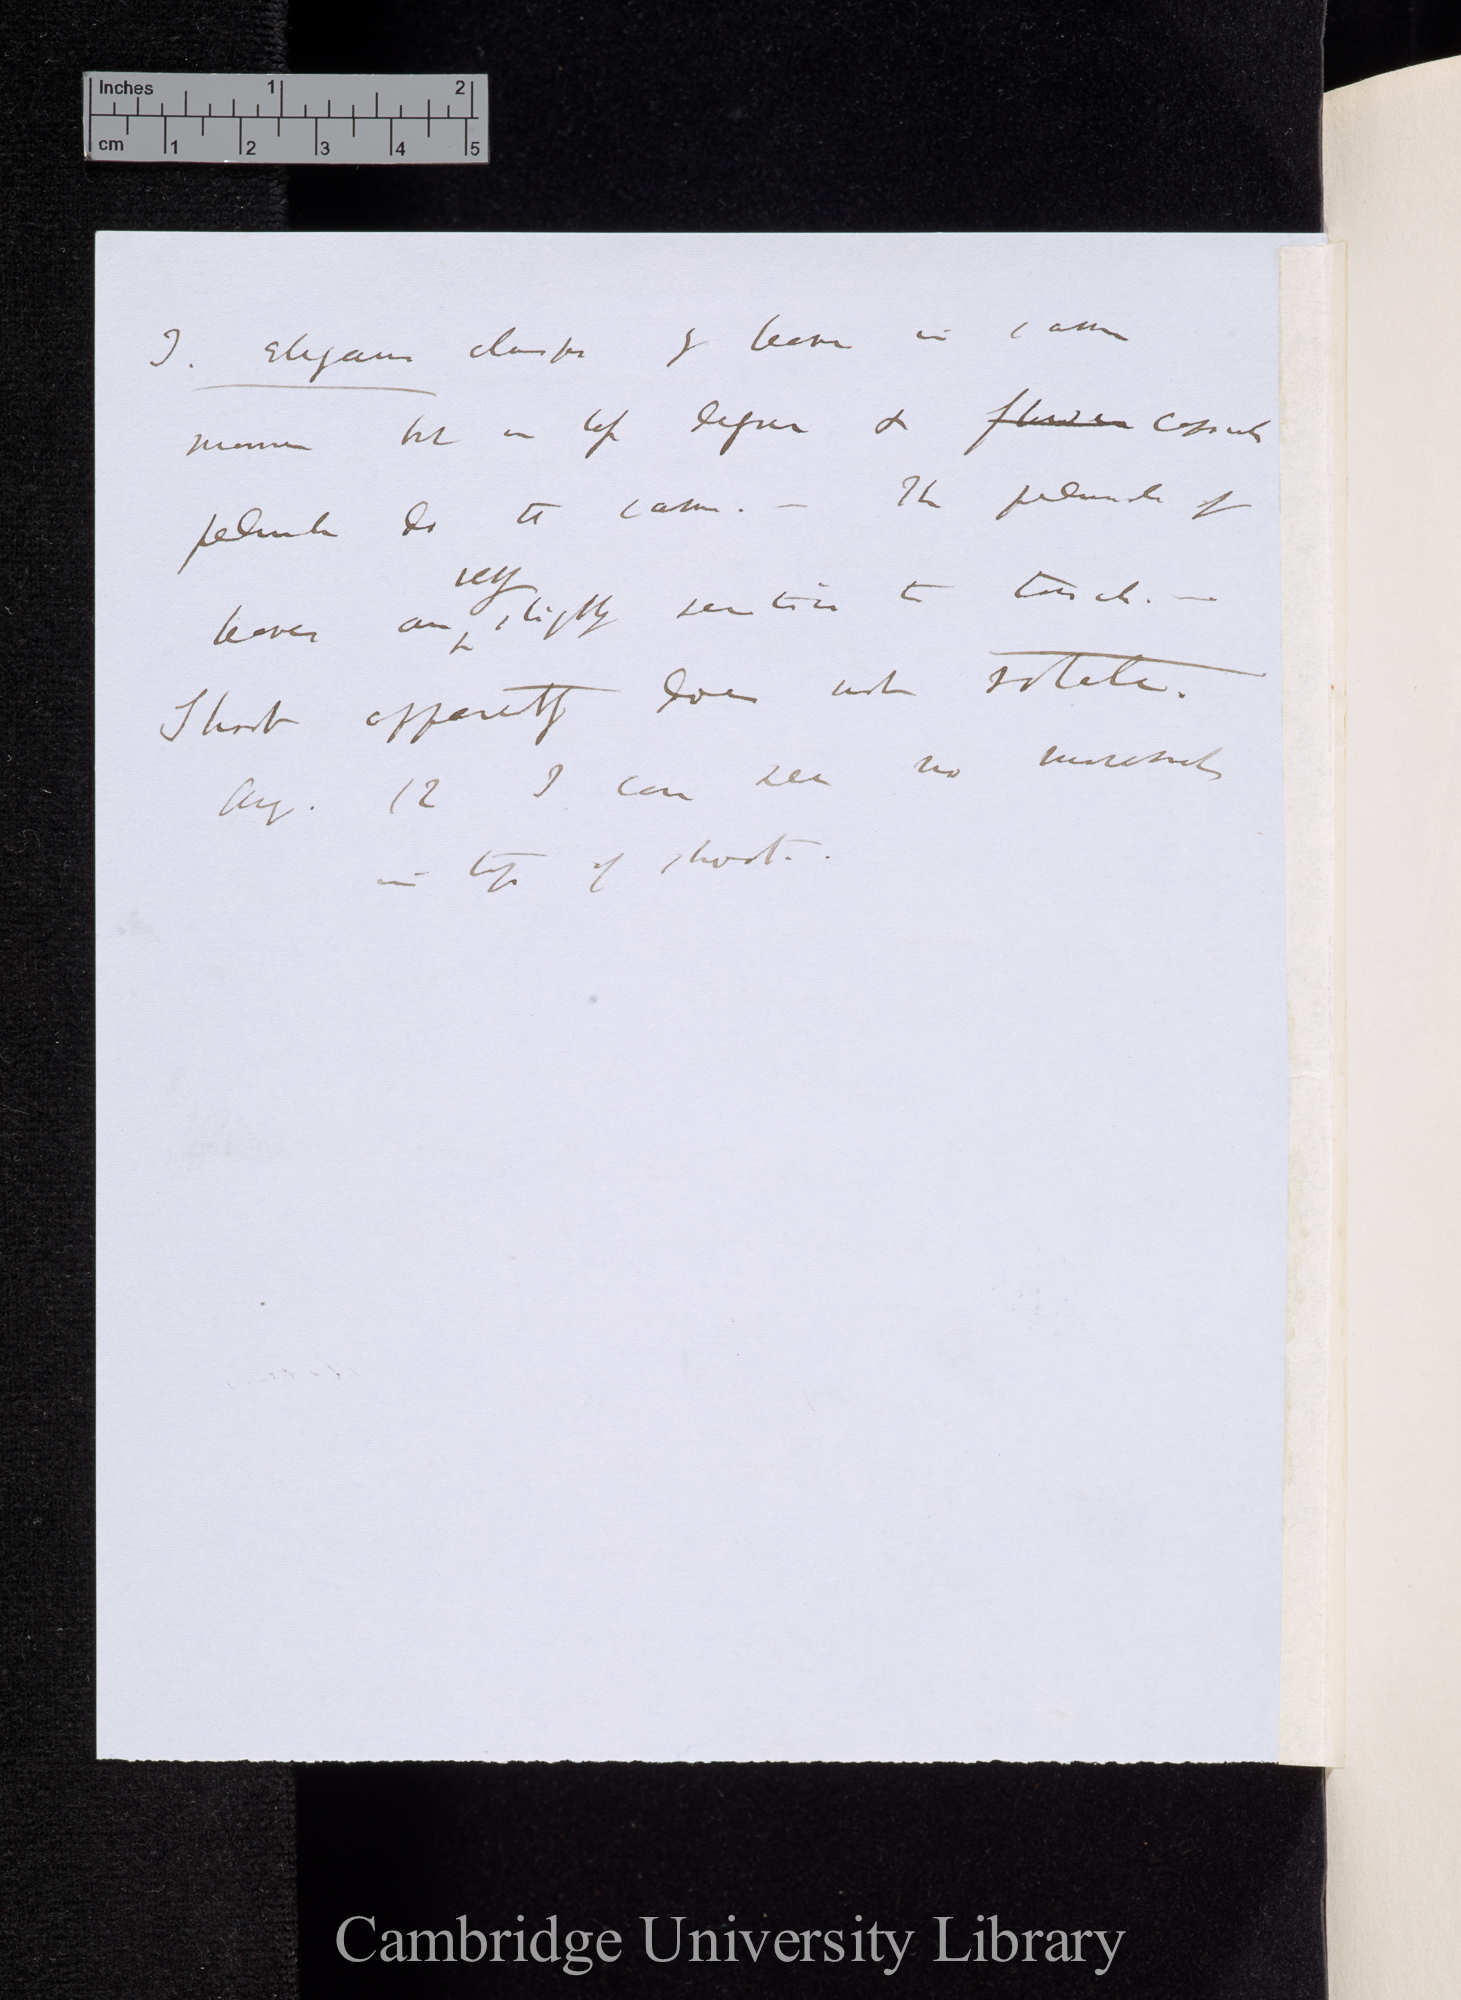 Inches 1 2
cm 1 2 3 4 5
T. elegans clasps by leaves in same
manner but in less degree & flower capsule
peduncle do the same. — The peduncle of
leaves are very slightly sensitive to touch. —
Shoot apparently does not rotate.
Aug. 12 I can see no movements
in tip of shoot.
Cambridge University Library